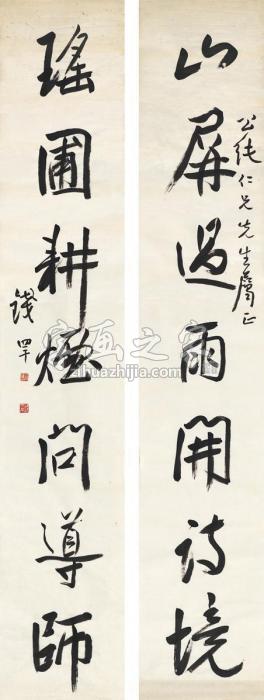 山屏過雨開詩境
公純仁兄先生屬正
瑤圃耕煙問導師
錢罕
字画之家
zihuazhijia.com